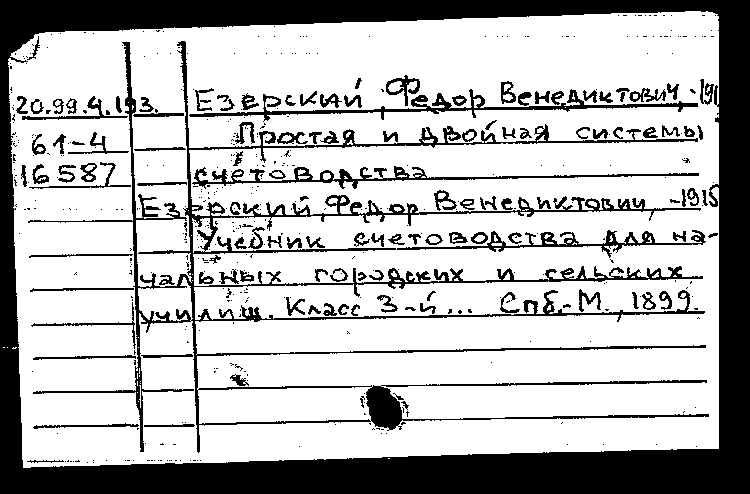 20.99.4.193. Езерский, Федор Венедиктович, -191
61-4 Простая и двойная системы
16587 счетоводства
Езерский, Федор Венедиктович, -1915
Учебник счетоводства для на-
чальных городских и сельских
училищ. Класс 3-й... Спб.-М., 1899.